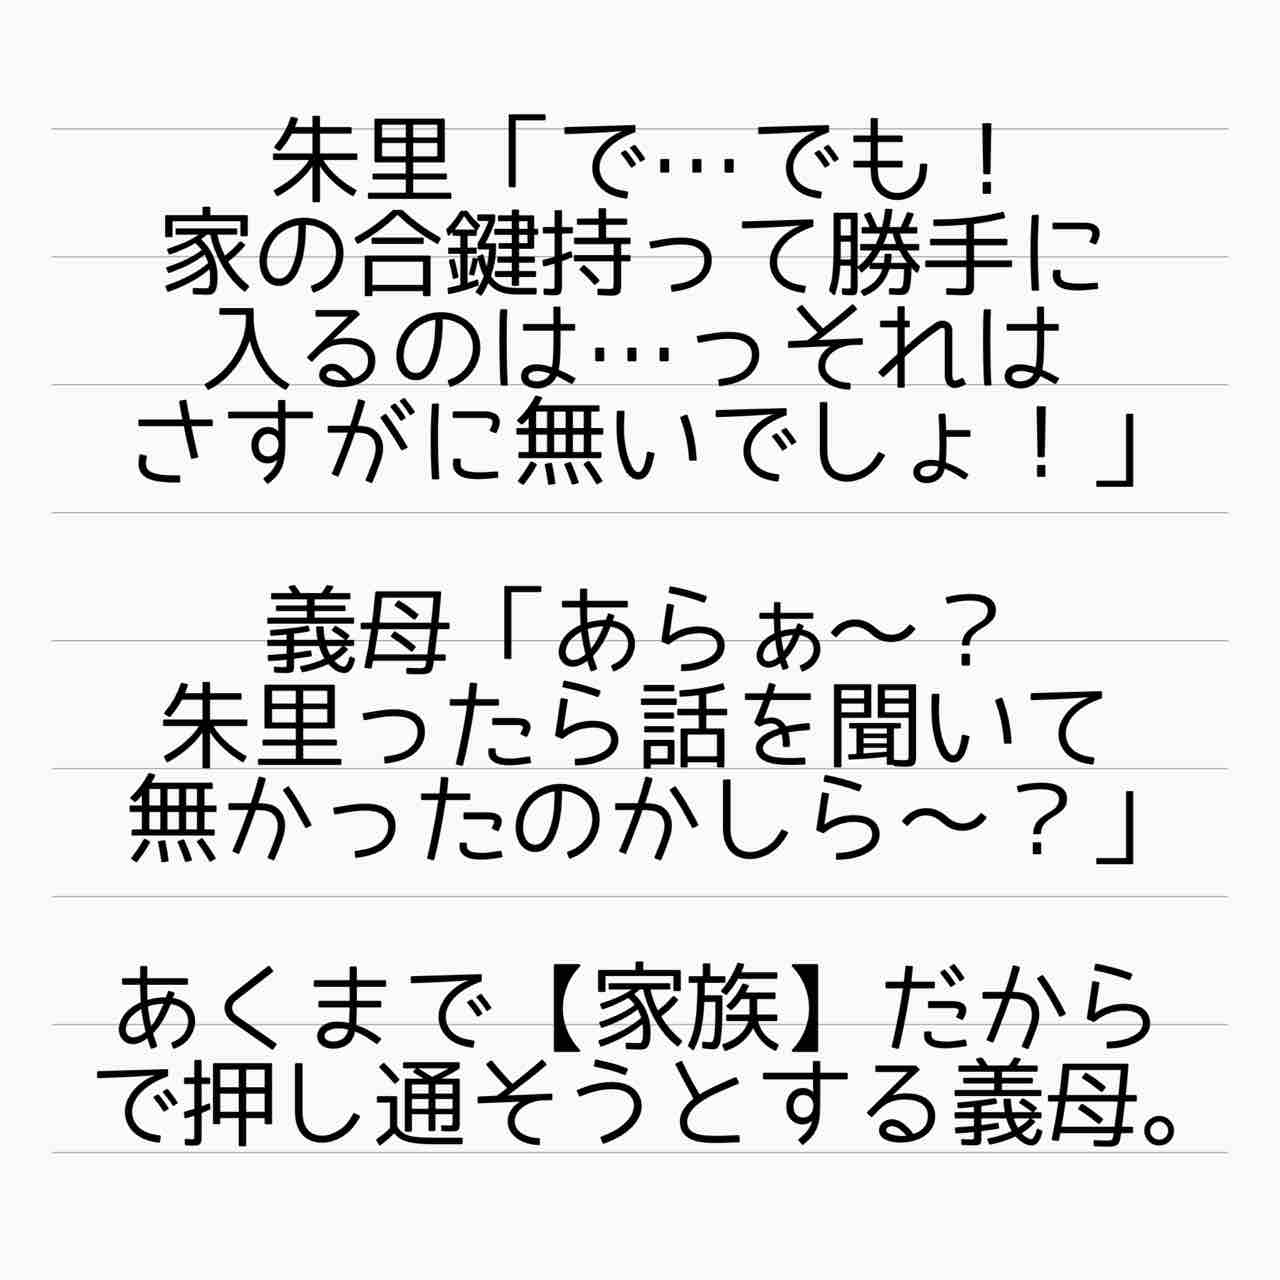 朱里「で…でも！
家の合鍵持って勝手に
入るのは…っそれは
さすがに無いでしょ！」
義母「あらぁ〜？
朱里ったら話を聞いて
無かったのかしら〜？」
あくまで【家族】だから
で押し通そうとする義母。